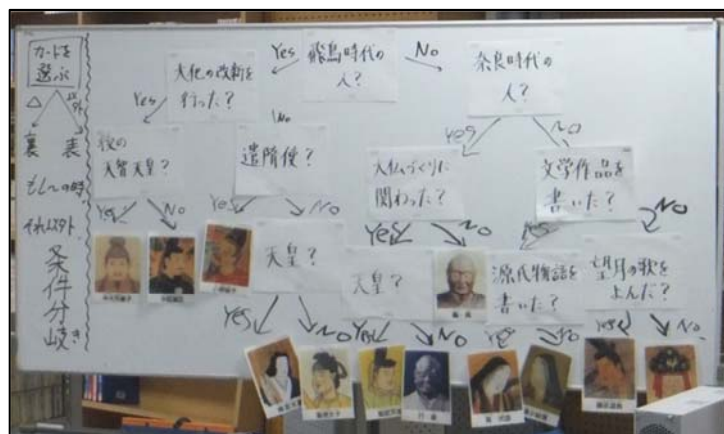 カードを
選ぶ
裏 表
もし〜の時
それ以外
条件分岐き
飛鳥時代の
人?
Yes
No
大化の改新を
行った?
奈良時代の
人?
Yes
No
Yes
No
後の
天智天皇?
遣隋使?
大仏づくりに
関わった?
文学作品を
書いた?
Yes
No
Yes
No
Yes
No
Yes
No
天皇?
天皇?
源氏物語を
書いた?
望月の歌を
よんだ?
Yes
No
Yes
No
Yes
No
Yes
No
行基
紫式部